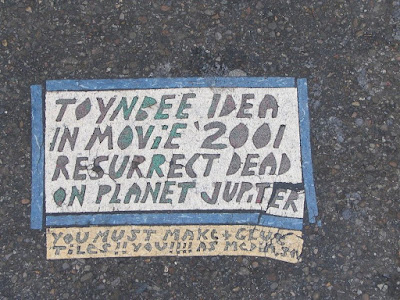 TOYNBEE IDEA
IN MOVIE '2001
RESURRECT DEAD
ON PLANET JUPITER
YOU MUST MAKE + GLUE
TILES!! YOU!!!! AS